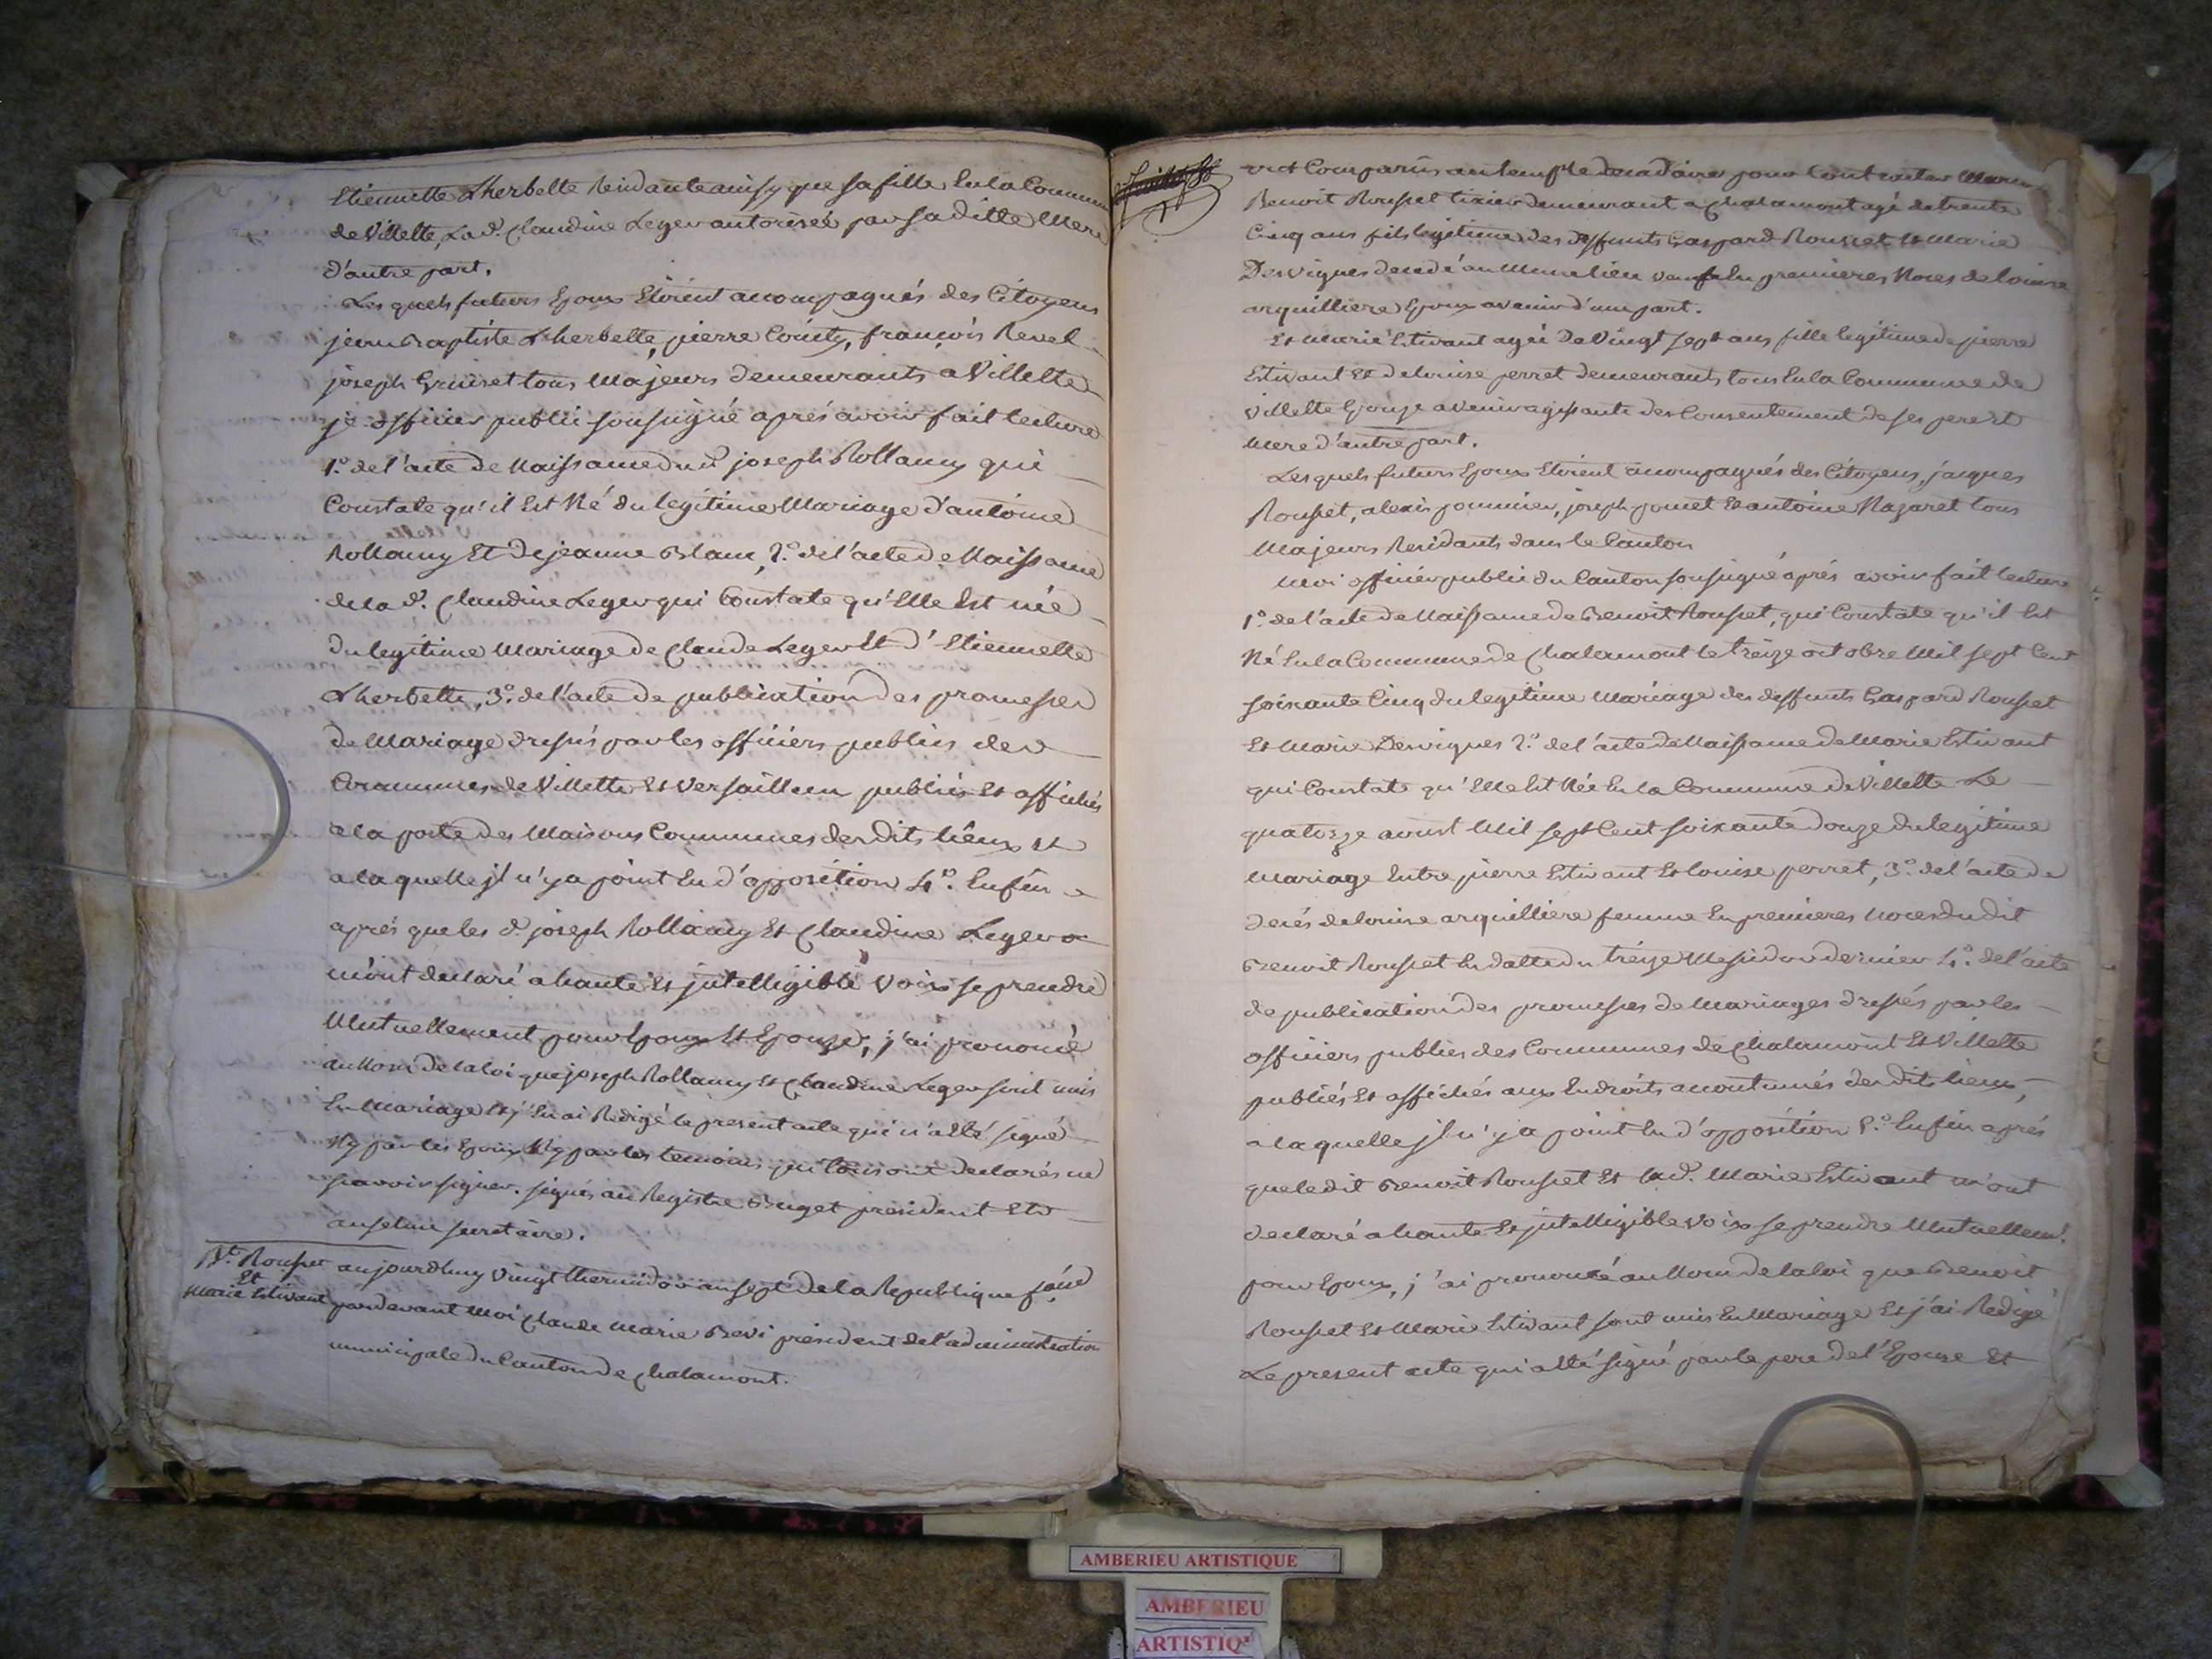 Etiennette Lherbette Residante ainsy que sa fille En la Commune
de Villette La d. Claudine Leger autorisée par sa ditte Mere
d'autre part.
Les quels futurs Epoux Etoient acompagnés des Citoyens
jean Baptiste Lherbette, pierre Cointy, françois Revel
joseph Gruiset tous Majeurs demeurants a Villette
je officier public soussigné aprés avoir fait lecture
1.° de l'acte de Naissance dud. joseph Rollamy qui
Constate qu'il Est Né du legitime Mariage d'antoine
Rollamy Et de jeanne Blanc, 2.° de l'acte de Naissance
de la d. Claudine Leger qui Constate qu'Elle Est née
du legitime Mariage de Claude Leger Et d'Etiennette
Lherbette, 3.° de l'acte de publication des promesses
de Mariage dressés par les officiers publics des
Communes de Villette Et Versailleux publiés Et affichés
a la porte des Maisons Communes desdits lieux Et
a la quelle jl n'y a point Eu d'opposition 4.° Enfin
aprés que les d. joseph Rollamy Et Claudine Leger
m'ont declaré a haute Et jntelligible voix se prendre
Mutuellement pour Epoux Et Epouze, j'ai prononcé
au Nom de la loi que joseph Rollamy Et Claudine Leger sont unis
En Mariage Et j'En ai Redigé le present acte qui n'a été signé
Ny par les Epoux Ny par les temoins qui tous ont declarés ne
scavoir signer. signés au Registre Buget president Et
anselme secretaire.
B.t Rousset
Et
Marie Estivant
aujourdhuy vingt thermidor an sept de la Republique française
pardevant Moi Claude Marie Bevi president de l'administration
municipale du Canton de Chalamont.
ont Comparus au temple decadaire pour Contracter Mariage
Benoit Rousset tixier demeurant a Chalamont agé de trente
Cinq ans fils legitime des deffunts Gaspard Rousset Et Marie
Desvignes decedé au Meme lieu veuf En premieres Noces de louise
arquilliere Epoux avenir d'une part.
Et Marie Estivant agée de vingt sept ans fille legitime de pierre
Estivant Et de louise perret demeurants tous En la Commune de
Villette Epouze avenir agissante des Consentement de ses pere Et
Mere d'autre part.
Les quels futurs Epoux Etoient acompagnés des Citoyens, jacques
Rousset, alexis pommier, joseph pomet Et antoine Nazaret tous
Majeurs Residants dans le Canton
Moi officier public du Canton soussigné aprés avoir fait lecture
1.° de l'acte de Naissance de Benoit Rousset, qui Constate qu'il Est
Né En la Commune de Chalamont le treize octobre Mil sept Cent
soixante Cinq du legitime Mariage des deffunts Gaspard Rousset
Et Marie Desvignes 2.° de l'acte de Naissance de Marie Estivant
qui Constate qu'Elle Est Née En la Commune de Villette Le
quatorze aoust Mil sept Cent soixante douze du legitime
Mariage Entre pierre Estivant Et louise perret, 3.° de l'acte de
decés de louise arquilliere femme En premieres Noces dudit
Benoit Rousset En datte du treize Messidor dernier 4.° de l'acte
de publication des promesses de Mariages dressés par les
officiers publics des Communes de Chalamont Et Villette
publiés Et affichés aux Endroits acoutumés desdits lieux,
a la quelle jl n'y a point Eu d'opposition 5.° Enfin aprés
que ledit Benoit Rousset Et la d. Marie Estivant m'ont
declaré a haute Et jntelligible voix se prendre Mutuellem.t
pour Epoux, j'ai prononcé au Nom de la loi que Benoit
Rousset Et Marie Estivant sont unis En Mariage Et j'ai Redigé
Le present acte qui a été signé par le pere de l'Epouse Et
AMBERIEU ARTISTIQUE
AMBERIEU
ARTISTIQ